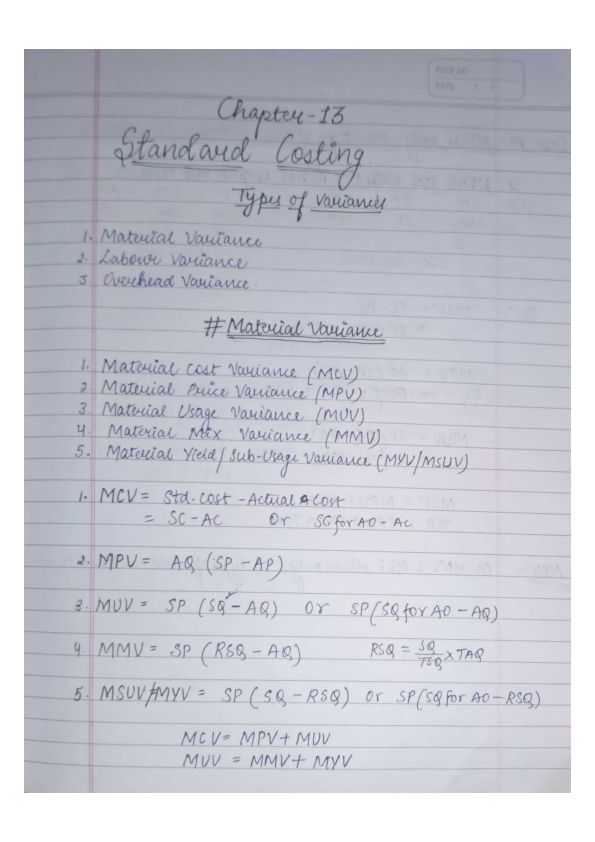 PAGE NO.
DATE / /
Chapter-13
Standard Costing
Types of variances
1. Material Variance
2. Labour Variance
3. Overhead Variance.
# Material Variance
1. Material Cost Variance (MCV)
2. Material Price Variance (MPV)
3. Material Usage Variance (MUV)
4. Material Mix Variance (MMV)
5. Material Yield/Sub-Usage Variance (MYV/MSUV)
1. MCV = Std. Cost - Actual Cost
= SC - AC Or SC for AO - AC
2. MPV = AQ (SP - AP)
3. MUV = SP (SQ - AQ) Or SP (SQ for AO - AQ)
4. MMV = SP (RSQ - AQ) RSQ = SQ/TSQ × TAQ
5. MSUV/MYV = SP (SQ - RSQ) Or SP (SQ for AO - RSQ)
MCV = MPV + MUV
MUV = MMV + MYV